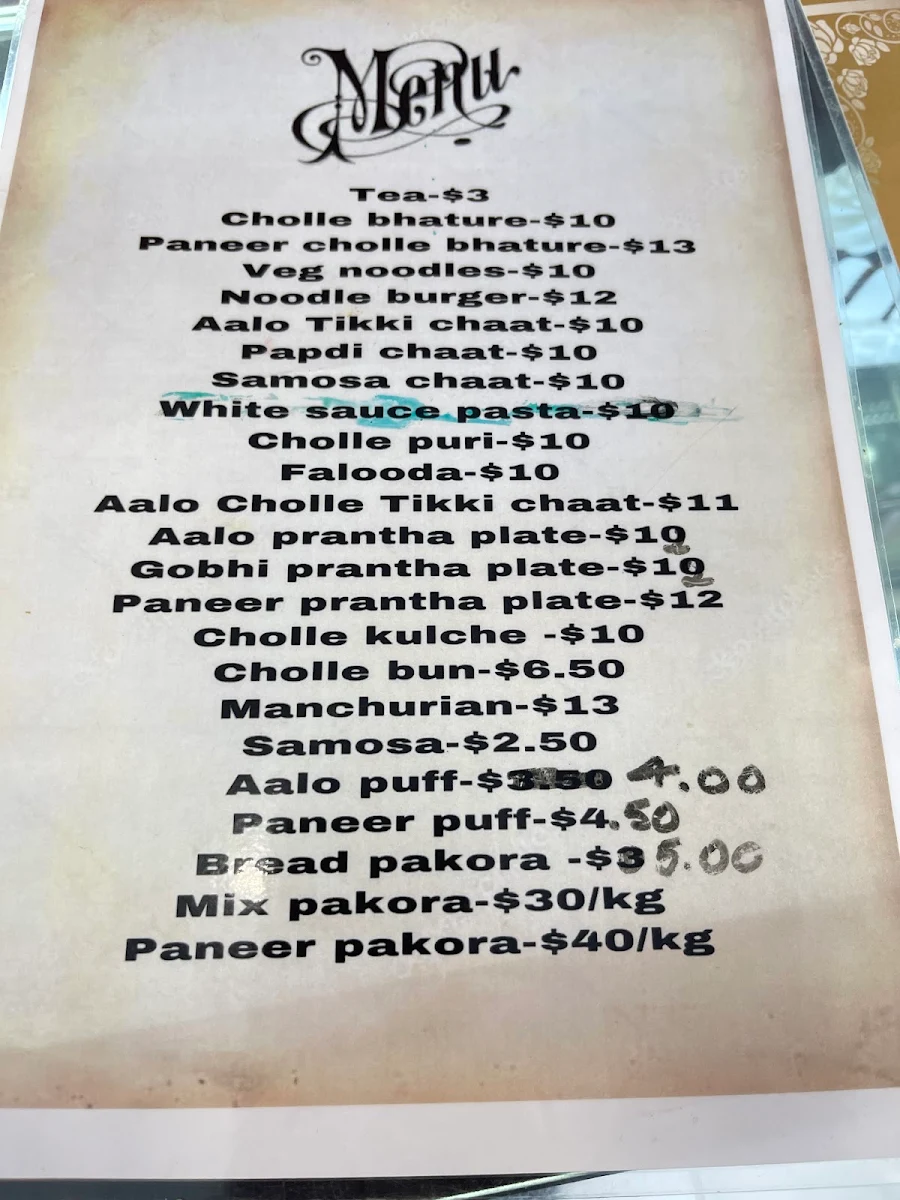 Menu
Tea-$3
Cholle bhature-$10
Paneer cholle bhature-$13
Veg noodles-$10
Noodle burger-$12
Aalo Tikki chaat-$10
Papdi chaat-$10
Samosa chaat-$10
White sauce pasta-$10
Cholle puri-$10
Falooda-$10
Aalo Cholle Tikki chaat-$11
Aalo prantha plate-$10
Gobhi prantha plate-$10
Paneer prantha plate-$12
Cholle kulche -$10
Cholle bun-$6.50
Manchurian-$13
Samosa-$2.50
Aalo puff-$3.50 4.00
Paneer puff-$4.50
Bread pakora -$3 5.00
Mix pakora-$30/kg
Paneer pakora-$40/kg